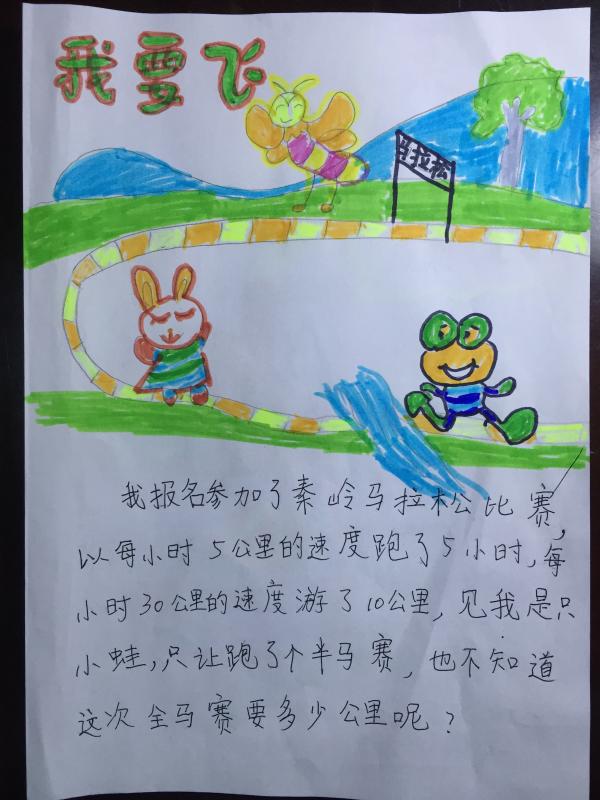 我要飞
马拉松
我报名参加了秦岭马拉松比赛,
以每小时5公里的速度跑了5小时,每
小时30公里的速度游了10公里,见我是只
小蛙,只让跑了个半马赛,也不知道
这次全马赛要多少公里呢?